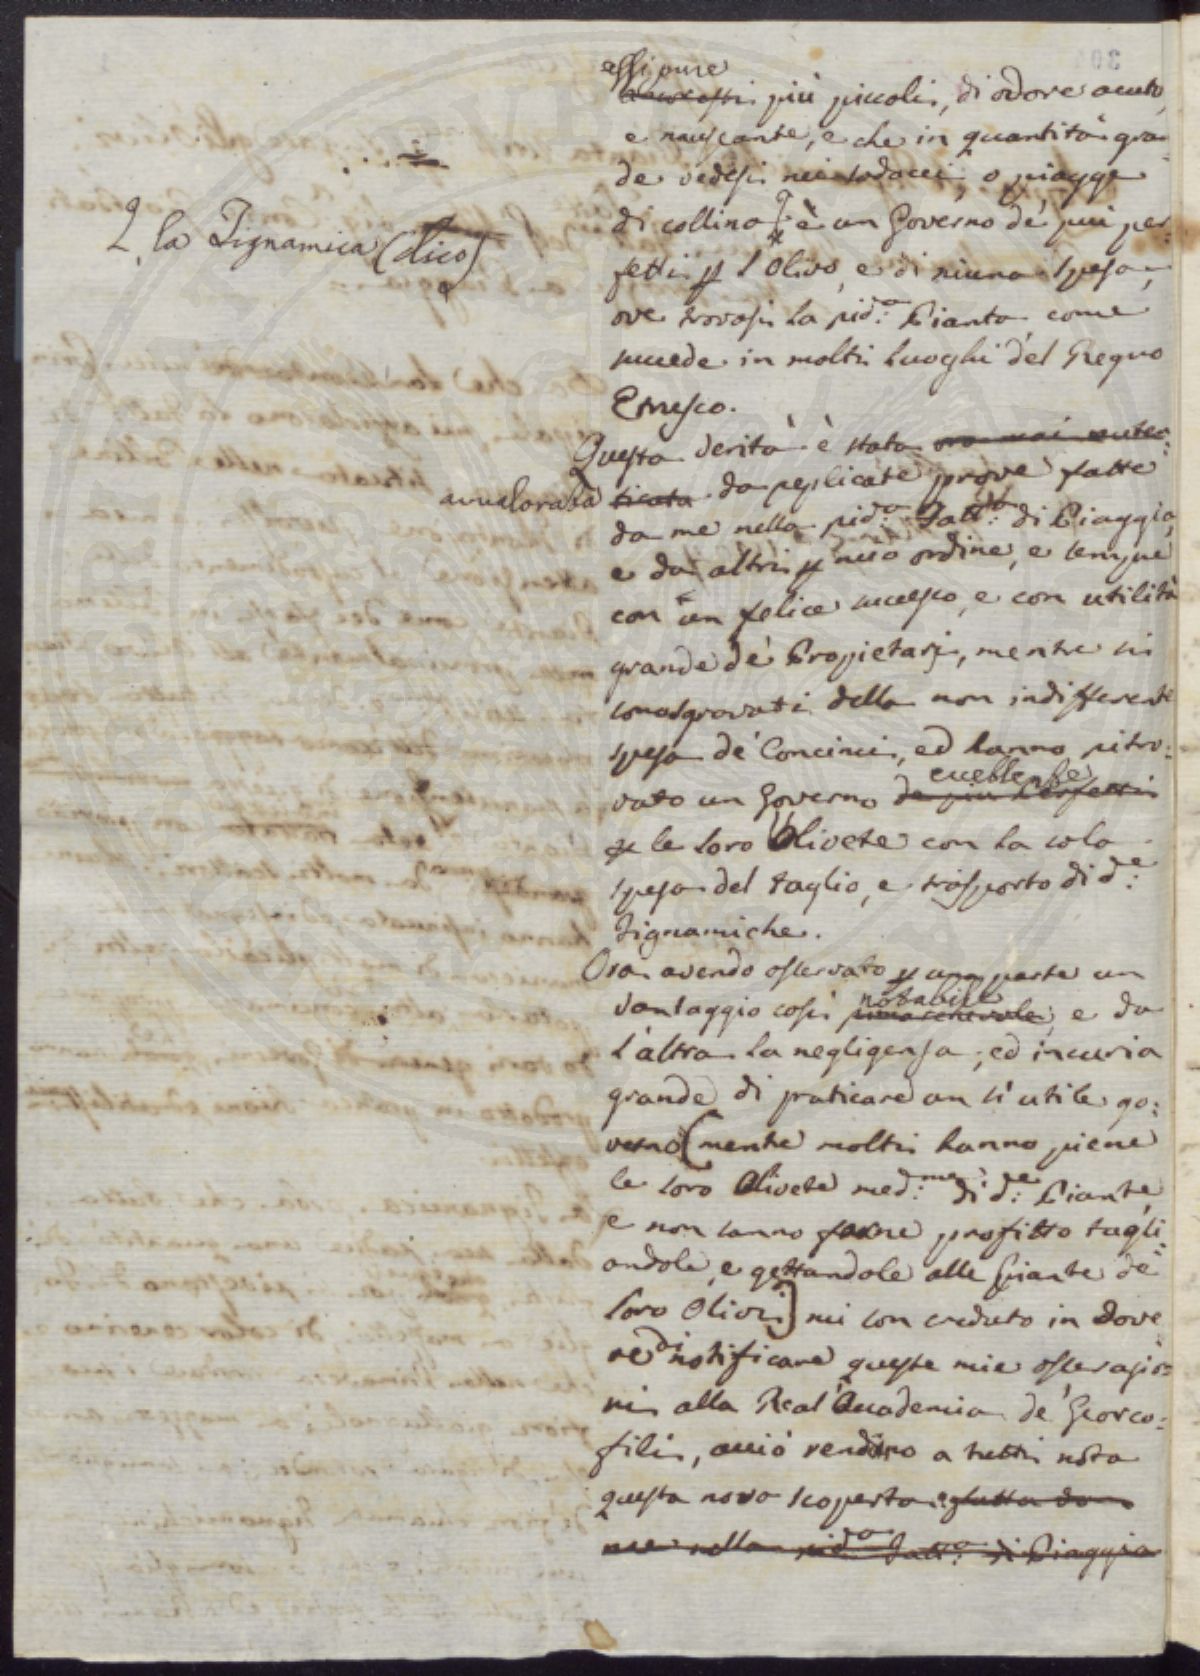 essi pure
ancor essi più piccoli, di odore acuto,
e nauseante, e che in quantità gran
de vedesi nei sodacci, o piagge
di collina è un Governo de' più per:
2. la Tignamica (dico)
fetti p l'Olivo, e di niuna spesa,
ove trovasi la pid.a Pianta, come
succede in molti Luoghi del Regno
Etrusco.
Questa verità è stata ora mai auten:
avvalorata ticata da replicate prove fatte
da me nella pid.a Fatt.a di Piaggia,
e da altri p mio ordine, e sempre
con un felice successo, e con utilità
grande de' Propietarj, mentre si
sono sgravati della non indifferente
spesa de' Concimi, ed hanno ritro:
eccellente
vato un Governo de più Perfetti
p le loro Olivete con la sola
spesa del taglio, e trasporto di d.e
Tignamiche.
Ora avendo osservato p una parte un
notabile
vantaggio così rimarchevole, e da
l'altra la negligenza, ed incuria
grande di praticare un sì utile go:
verno (mentre molti hanno piene
le loro Olivete med.me di d.e Piante,
e non sanno farne profitto tagli:
andole, e gettandole alle Piante de'
loro Olivi) mi son creduto in dove
re di notificare queste mie osservazio:
ni alla Real Accademia de' Georgo:
fili, acciò rendino a tutti nota
questa nova scoperta fatta da
me nella pid.a Fatt.a di Piaggia